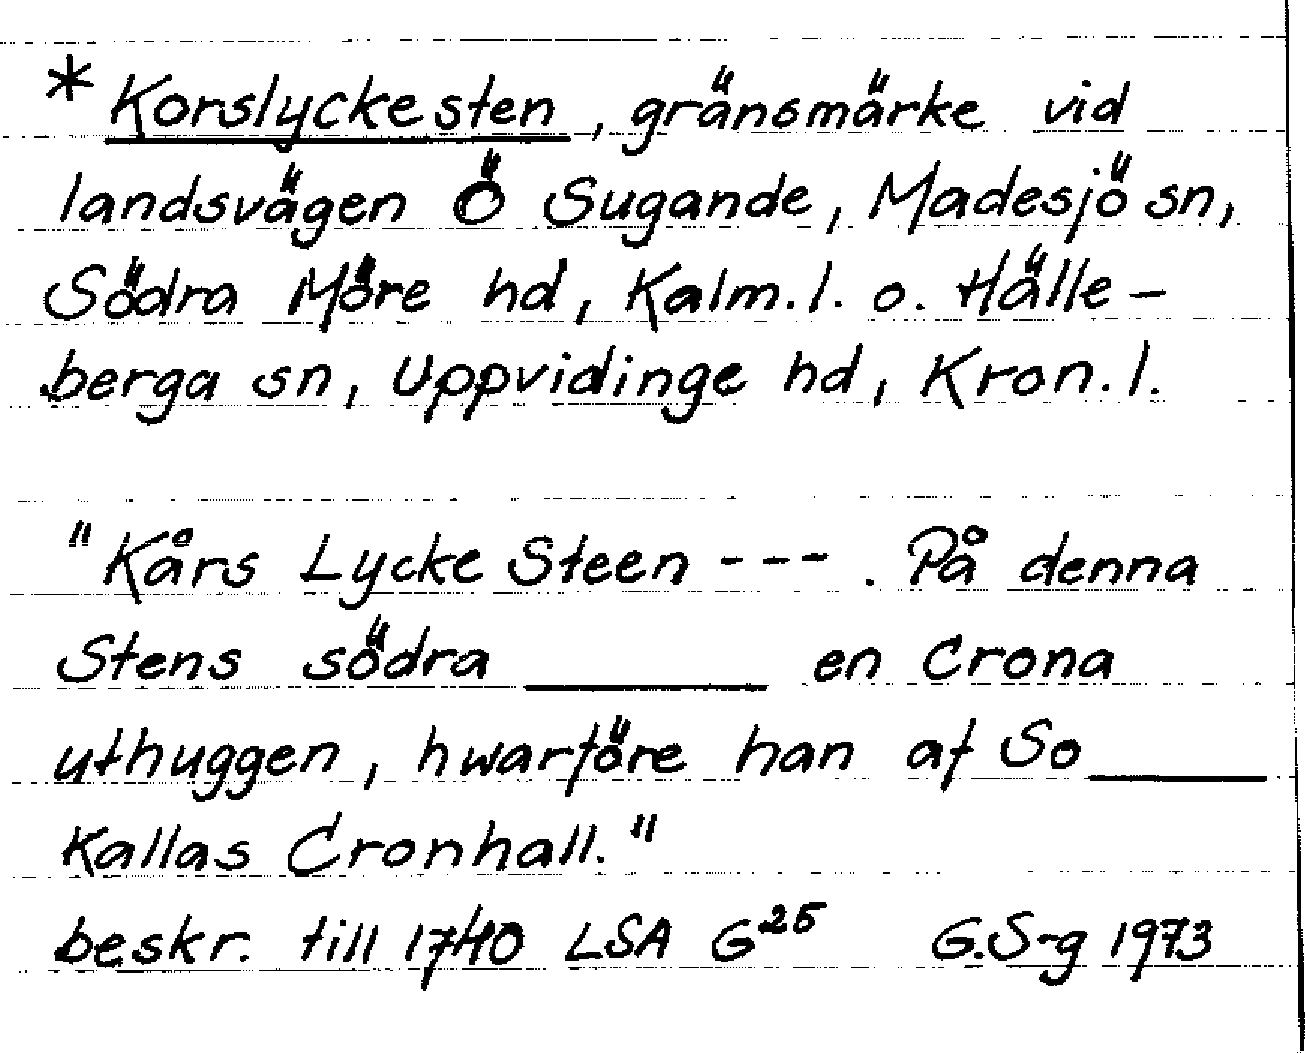 * Korslyckesten, gränsmärke vid
landsvägen Ö Sugande, Madesjö sn,
Södra Möre hd, Kalm.l. o. Hälle-
berga sn, Uppvidinge hd, Kron.l.
"Kårs Lycke Steen --- . På denna
Stens södra ______ en Crona
uthuggen, hwarföre han af So______
Kallas Cronhall."
beskr. till 1740 LSA G²⁵ G.S-g 1973